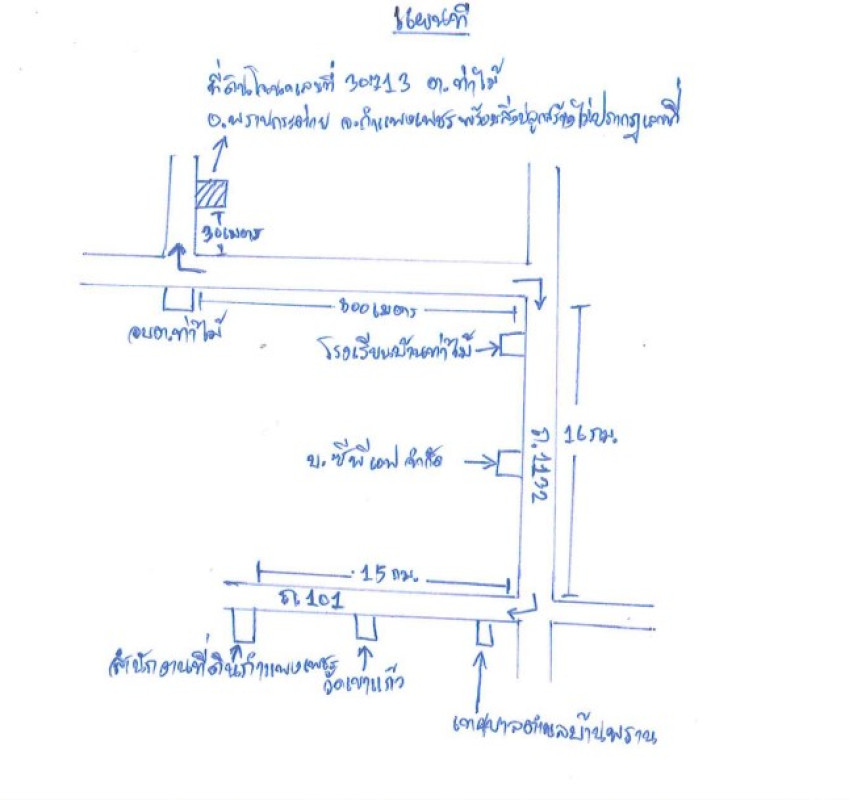 แผนที่
ที่ดินโฉนดเลขที่ 30713 ต.ท่าไม้
อ.พรานกระต่าย จ.กำแพงเพชร พร้อมสิ่งปลูกสร้างไม่ปรากฏเลขที่
30 เมตร
300 เมตร
อบต.ท่าไม้
โรงเรียนบ้านท่าไม้
16 กม.
บ.ซีพีเอฟ จำกัด
ถ.1132
15 กม.
ถ.101
สำนักงานที่ดินกำแพงเพชร
วัดเขาแก้ว
เทศบาลตำบลบ้านพราน